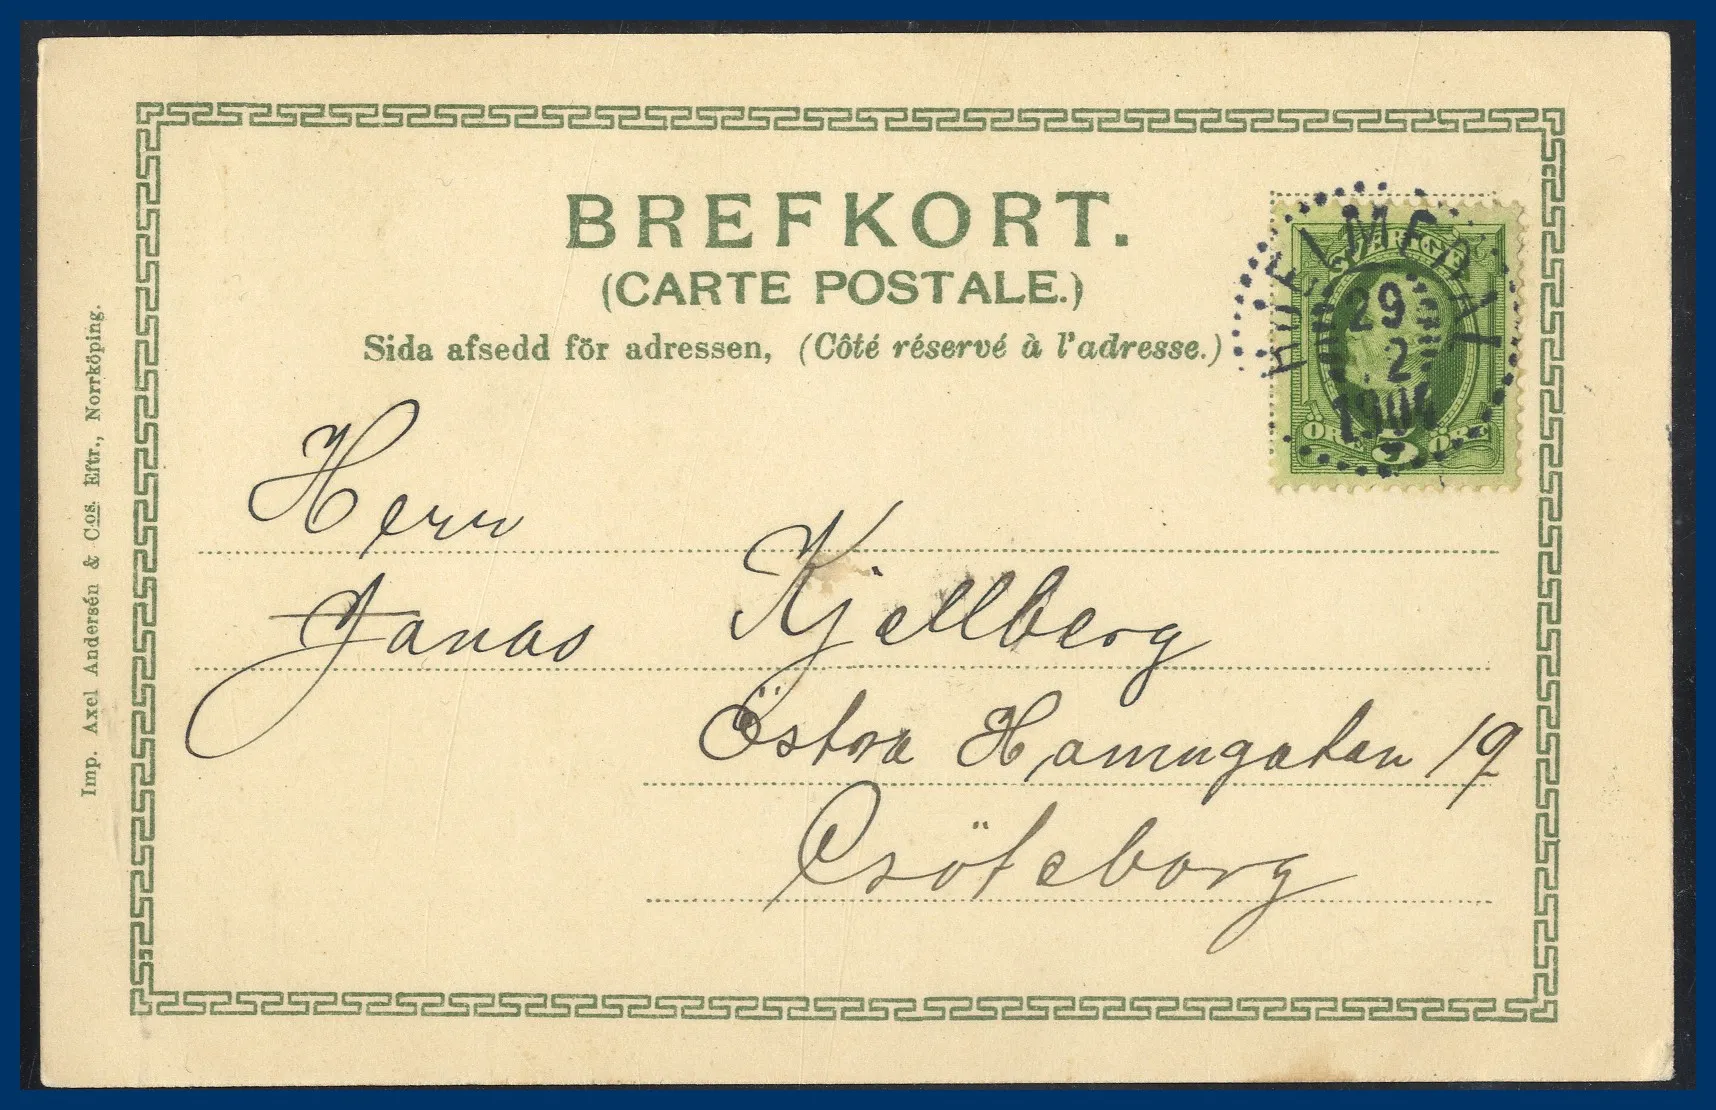 BREFKORT.
(CARTE POSTALE.)
Sida afsedd för adressen, (Côté réservé à l'adresse.)
SVERIGE
29
2
ÖRE 5 ÖRE
Herr
Jonas Kjellberg
Östra Hamngatan 19
Göteborg
Imp. Axel Andersén & Cos. Eftr., Norrköping.